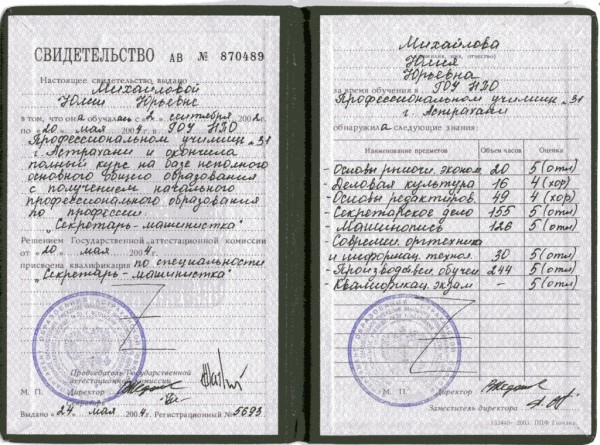 СВИДЕТЕЛЬСТВО АВ № 870489
Настоящее свидетельство выдано
Михайловой
Юлии Юрьевне
в том, что она обучалась с „2" сентября 2002 г.
по „20" мая 2004 г. в ГОУ НПО
Профессиональном училище №31
г. Астрахани и окончила
полный курс на базе неполного
основного общего образования
с получением начального
профессионального образования
по профессии
"Секретарь-машинистка"
Решением Государственной аттестационной комиссии
от „20" мая 2004 г.
присвоена квалификация по специальности
„Секретарь-машинистка"
Председатель Государственной
аттестационной комиссии
М. П. Директор
Секретарь
Выдано „24" мая 2004 г. Регистрационный № 5693
Михайлова
Юлия
(фамилия, имя, отчество)
Юрьевна
за время обучения в ГОУ НПО
Профессиональном училище №31
г. Астрахани
обнаружила следующие знания:
Наименование предметов Объем часов Оценка
- Основы рыночн. эконом. 20 5 (отл)
- Деловая культура 16 4 (хор)
- Основы редактиров. 49 4 (хор)
- Секретарское дело 155 5 (отл)
- Машинопись 126 5 (отл)
- Современ. оргтехника
и информац. технол. 30 5 (отл)
- Производствен. обучен. 244 5 (отл)
- Квалификац. экзам. - 5 (отл)
М. П. Директор
Заместитель директора
2003. ППФ Гознака